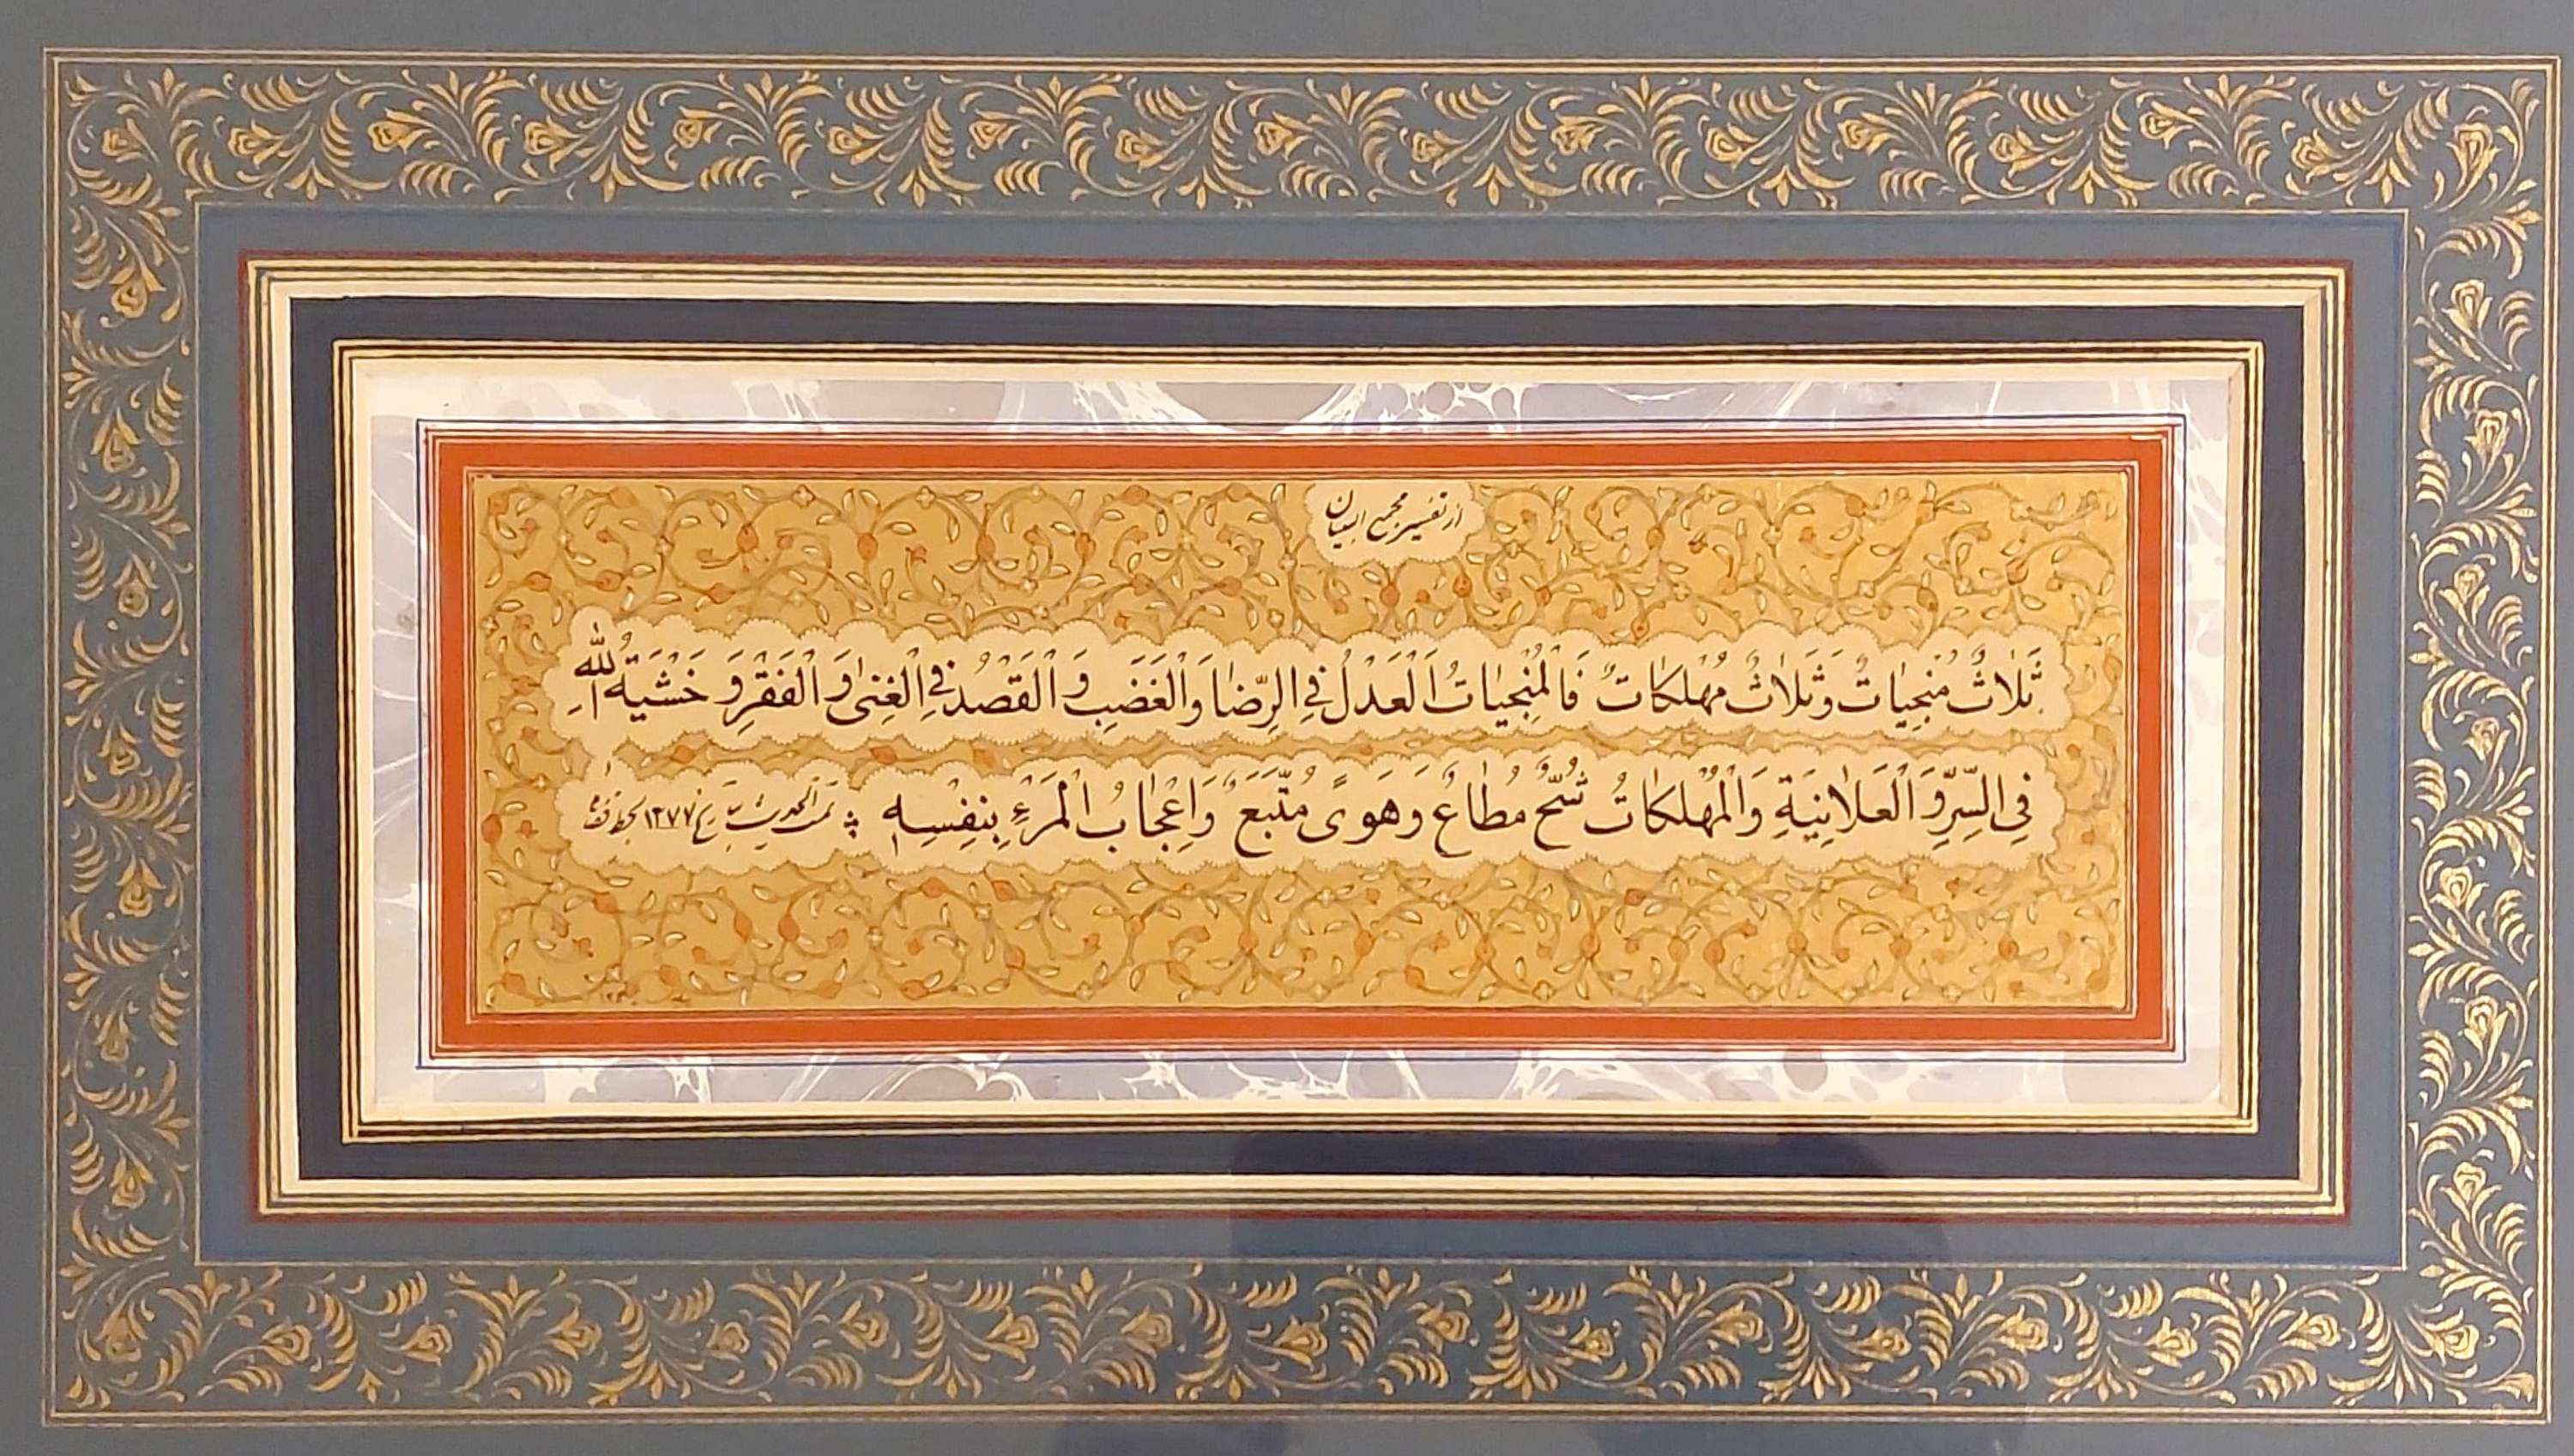 از تفسیر مجمع البیان
ثَلاٰثٌ مُنْجِیٰاتٌ وَ ثَلاٰثٌ مُهْلِکٰاتٌ فَالْمُنْجِیٰاتُ اَلْعَدْلُ فِی الرِّضٰا وَالْغَضَبِ وَ الْقَصْدُ فِی الْغِنیٰ وَ الْفَقْرِ وَ خَشْیَةُ اللّٰهِ
فِی السِّرِّ وَ الْعَلاٰنِیَةِ وَالْمُهْلِکٰاتُ شُحٌّ مُطٰاعٌ وَ هَویً مُتَّبَعٌ وَ اِعْجٰابُ الْمَرْءِ بِنَفْسِهِ تمت الحدیث ۱۲۷۷